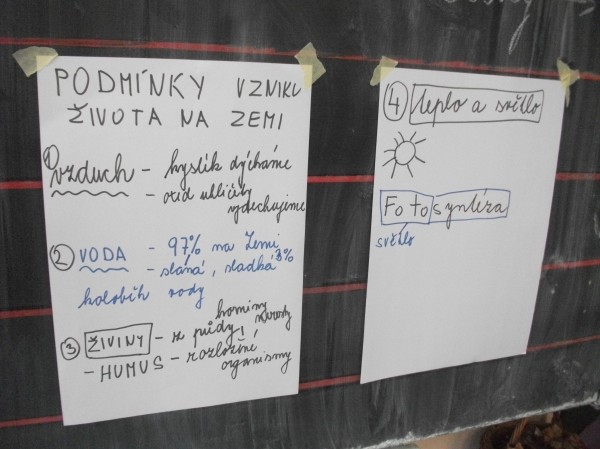 PODMÍNKY VZNIKU
ŽIVOTA NA ZEMI
1 vzduch - kyslík dýcháme
- oxid uhličitý
vydechujeme
2 VODA - 97% na Zemi
- slaná, sladká 3%
koloběh vody
3 ŽIVINY - z půdy, horniny
nerosty
- HUMUS - rozložené
organismy
4 teplo a světlo
Fotosyntéza
světlo